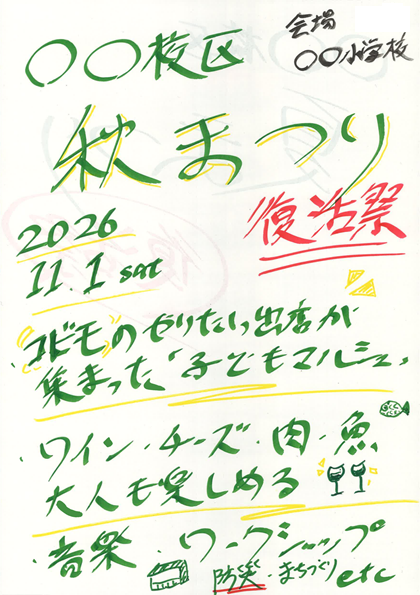 会場
〇〇小学校
〇〇校区
秋まつり
復活祭
2026
11.1 sat
・"コドモ"のやりたい出店が
集まった「子どもマルシェ」
・ワイン・チーズ・肉・魚
大人も楽しめる
・音楽・ワークショップ
防災・まちづくり etc